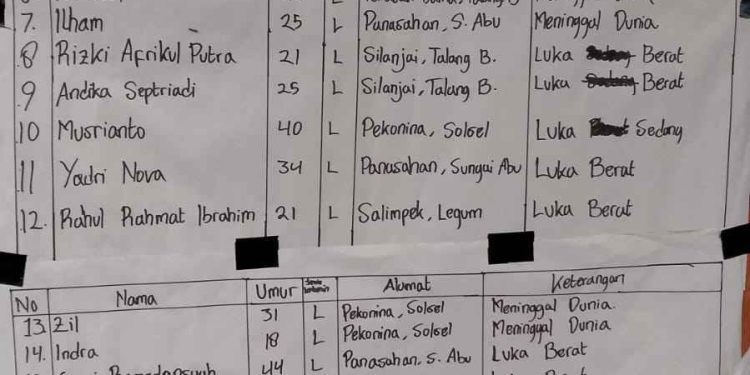 7. Ilham 25 L Panasahan, S. Abu Meninggal Dunia
8 Rizki Afrikul Putra 21 L Silanjai, Talang B. Luka Berat
9 Andika Septriadi 25 L Silanjai, Talang B. Luka Berat
10 Musrianto 40 L Pekonina, Solsel Luka Sedang
11 Yadri Nova 34 L Panasahan, Sungai Abu Luka Berat
12. Rahul Rahmat Ibrahim 21 L Salimpek, Legum Luka Berat
No Nama Umur Alamat Keterangan
13 Zil 31 L Pekonina, Solsel Meninggal Dunia.
14. Indra 18 L Pekonina, Solsel Meninggal Dunia
44 L Panasahan, S. Abu Luka Berat